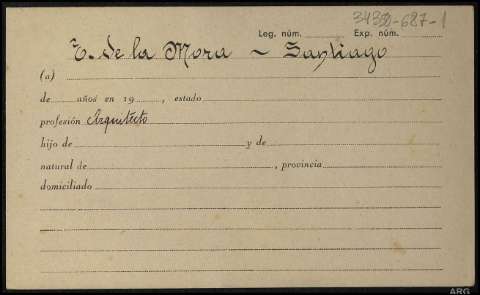 3432-687-1
Leg. núm. Exp. núm.
E. de la Mora ~ Santiago
(a)
de años en 19 , estado
profesión Arquitecto
hijo de y de
natural de , provincia
domiciliado
ARG